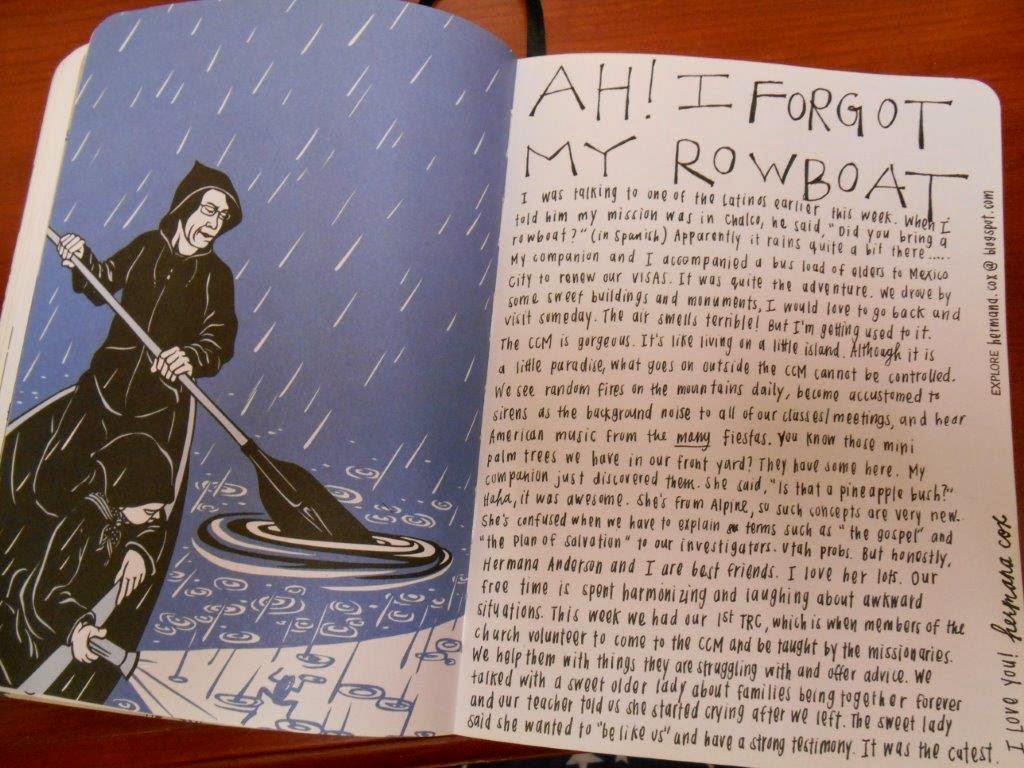 AH! I FORGOT
MY ROWBOAT
I was talking to one of the Latinos earlier this week. When I
told him my mission was in Chalco, he said, "Did you bring a
rowboat?" (in Spanish) Apparently it rains quite a bit there.....
My companion and I accompanied a bus load of elders to Mexico
City to renew our VISAS. It was quite the adventure. We drove by
some sweet buildings and monuments, I would love to go back and
visit someday. The air smells terrible! But I'm getting used to it.
The CCM is gorgeous. It's like living on a little island. Although it is
a little paradise, what goes on outside the CCM cannot be controlled.
We see random fires on the mountains daily, become accustomed to
sirens as the background noise to all of our classes/meetings, and hear
American music from the many fiestas. You know those mini
palm trees we have in our front yard? They have some here. My
companion just discovered them. She said, "Is that a pineapple bush?"
Haha, it was awesome. She's from Alpine, so such concepts are very new.
She's confused when we have to explain terms such as "the gospel" and
"the Plan of Salvation" to our investigators. Utah probs. But honestly,
Hermana Anderson and I are best friends. I love her lots. Our
free time is spent harmonizing and laughing about awkward
situations. This week we had our 1st TRC, which is when members of the
church volunteer to come to the CCM and be taught by the missionaries.
We help them with things they are struggling with and offer advice. We
talked with a sweet older lady about families being together forever
and our teacher told us she started crying after we left. The sweet lady
said she wanted to "be like us" and have a strong testimony. It was the cutest.
I LOVE YOU! hermana cox
EXPLORE hermana.cox@blogspot.com